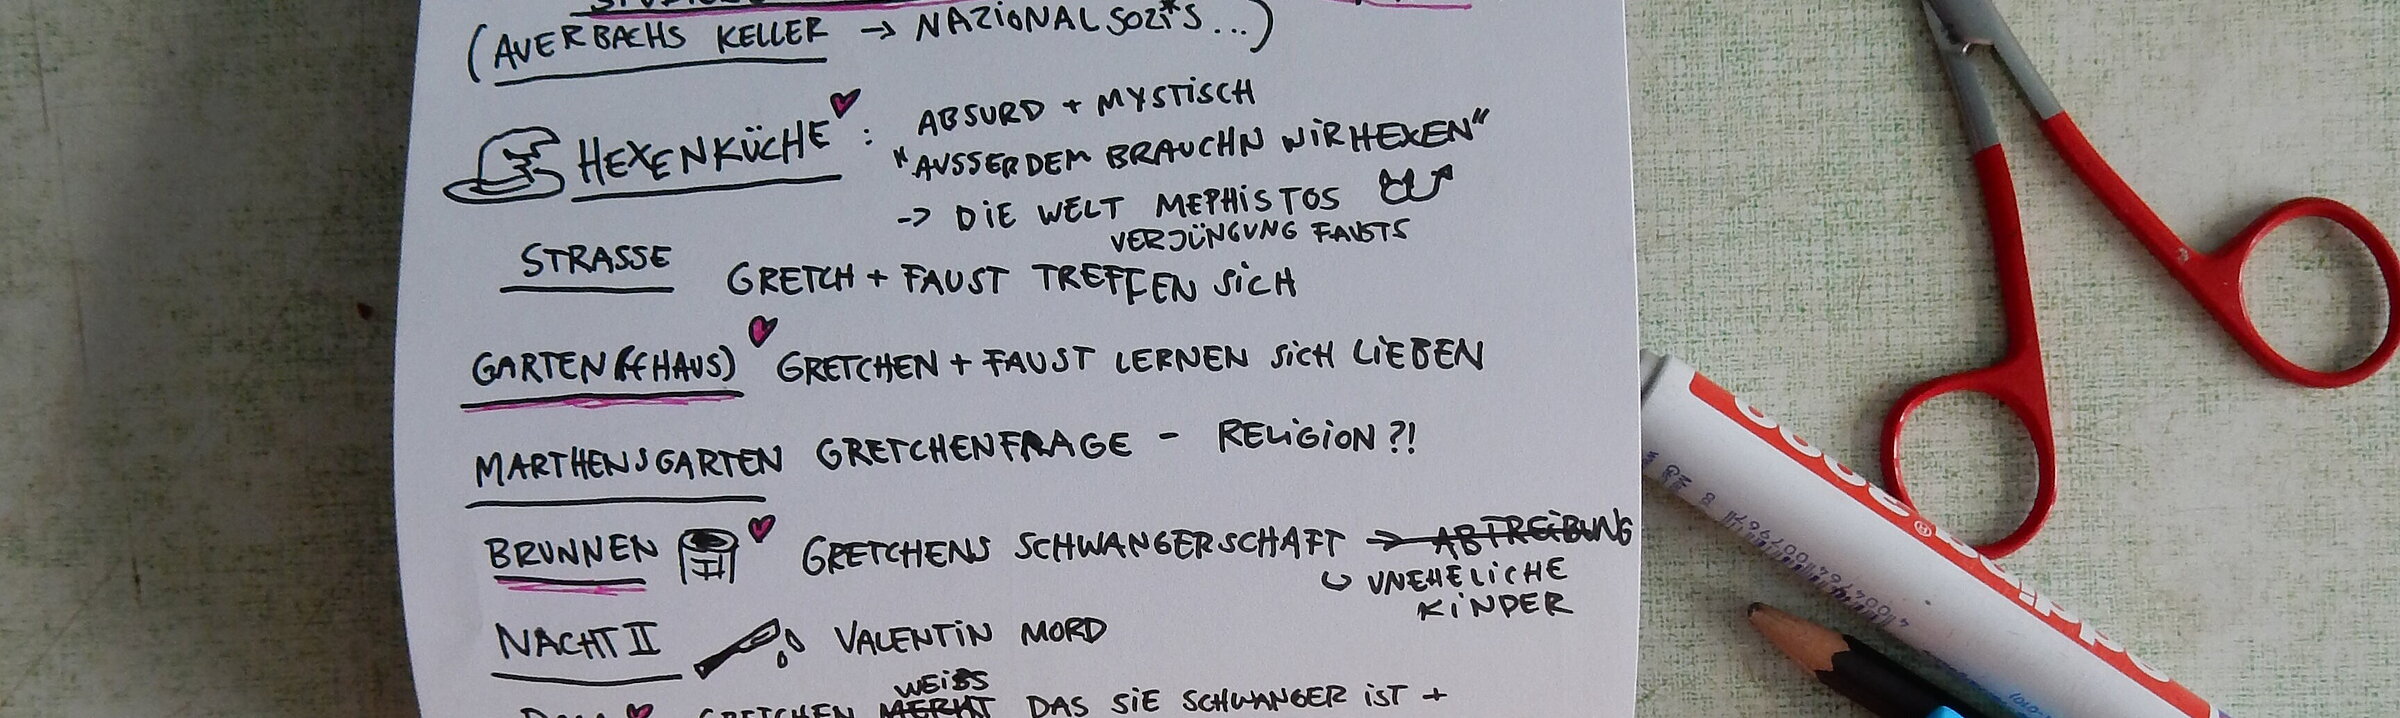 (AUERBACHS KELLER → NAZIONALSOZI*S...)
HEXENKÜCHE : ABSURD + MYSTISCH
"AUSSERDEM BRAUCHN WIR HEXEN"
-> DIE WELT MEPHISTOS
VERJÜNGUNG FAUSTS
STRASSE GRETCH + FAUST TREFFEN SICH
GARTEN(HAUS) GRETCHEN + FAUST LERNEN SICH LIEBEN
MARTHENSGARTEN GRETCHENFRAGE - RELIGION?!
BRUNNEN GRETCHENS SCHWANGERSCHAFT → ABTREIBUNG
UNEHELICHE
KINDER
NACHT II VALENTIN MORD
WEISS
GRETCHEN MERKT DAS SIE SCHWANGER IST +